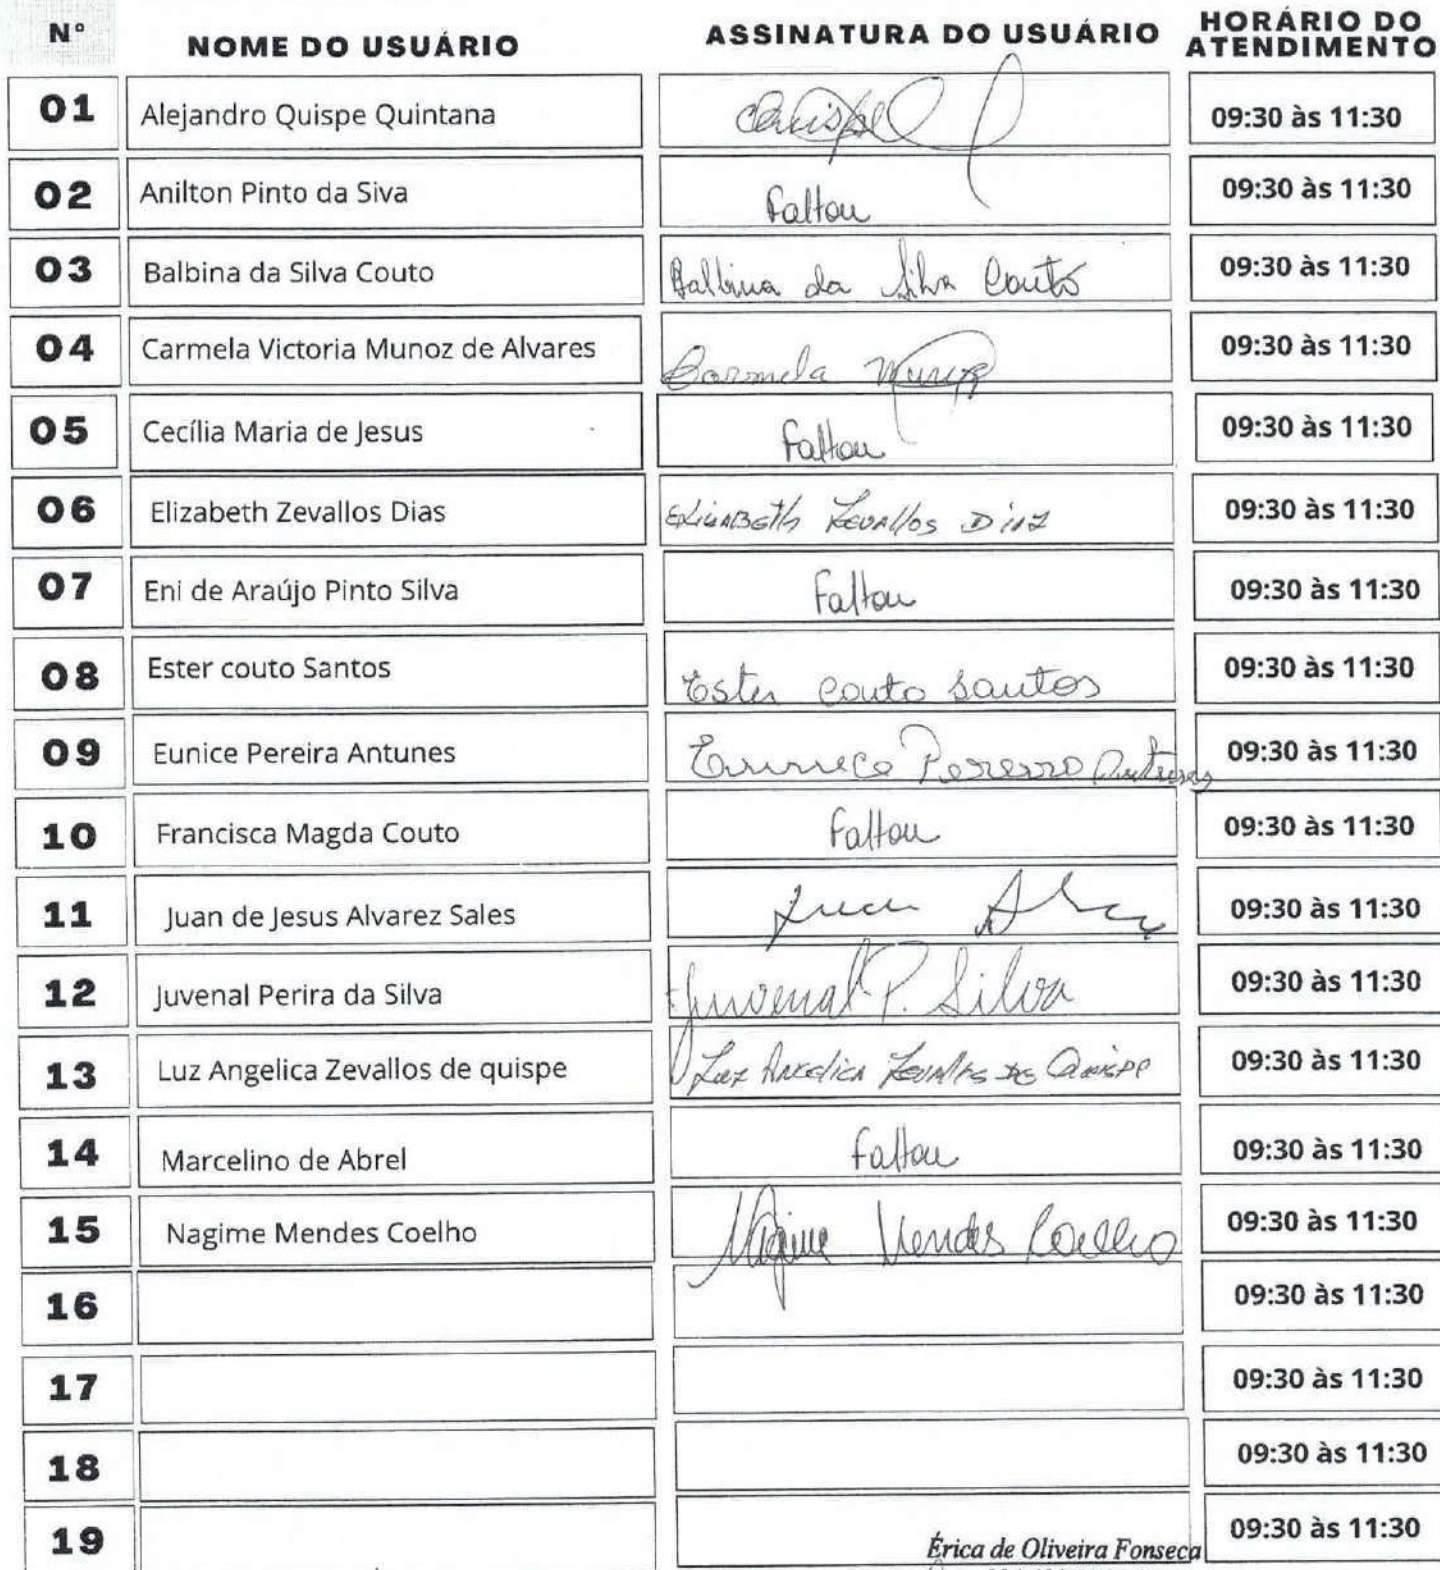 Nº NOME DO USUÁRIO ASSINATURA DO USUÁRIO HORÁRIO DO ATENDIMENTO
01 Alejandro Quispe Quintana 09:30 às 11:30
02 Anilton Pinto da Siva Faltou 09:30 às 11:30
03 Balbina da Silva Couto Balbina da Silva Couto 09:30 às 11:30
04 Carmela Victoria Munoz de Alvares Carmela Munoz 09:30 às 11:30
05 Cecília Maria de Jesus Faltou 09:30 às 11:30
06 Elizabeth Zevallos Dias Elizabeth Zevallos Diaz 09:30 às 11:30
07 Eni de Araújo Pinto Silva Faltou 09:30 às 11:30
08 Ester couto Santos Ester Couto Santos 09:30 às 11:30
09 Eunice Pereira Antunes 09:30 às 11:30
10 Francisca Magda Couto Faltou 09:30 às 11:30
11 Juan de Jesus Alvarez Sales Juan 09:30 às 11:30
12 Juvenal Perira da Silva Juvenal P. Silva 09:30 às 11:30
13 Luz Angelica Zevallos de quispe Luz Angelica Zevallos de Quispe 09:30 às 11:30
14 Marcelino de Abrel Faltou 09:30 às 11:30
15 Nagime Mendes Coelho Nagime Mendes Coelho 09:30 às 11:30
16 09:30 às 11:30
17 09:30 às 11:30
18 09:30 às 11:30
19 Érica de Oliveira Fonseca 09:30 às 11:30